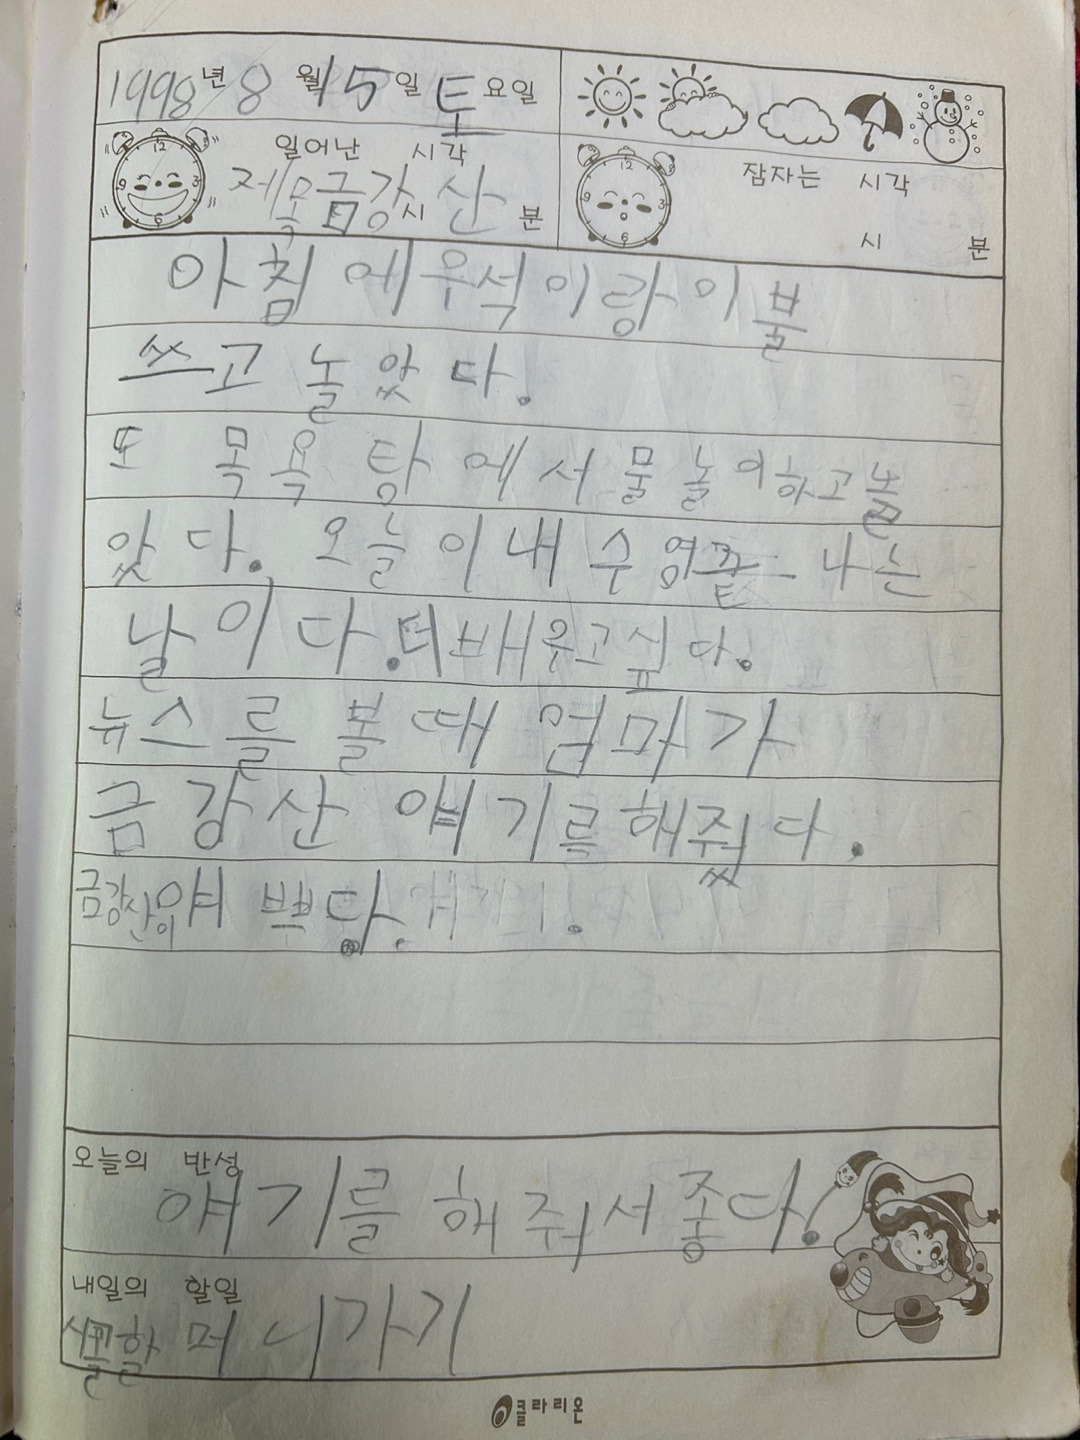 1998년 8월 15일 토요일
일어난 시각
제목 금강산
시 분
잠자는 시각
시 분
아침에 우석이랑 이불
쓰고 놀았다.
또 목욕탕에서 물놀이하고 놀
았다. 오늘이 내 수영 끝나는
날이다. 더 배우고 싶다.
뉴스를 볼 때 엄마가
금강산 얘기를 해줬다.
금강산이 예쁘다.
오늘의 반성
얘기를 해줘서 좋다.
내일의 할일
시골할머니가기
클라리온